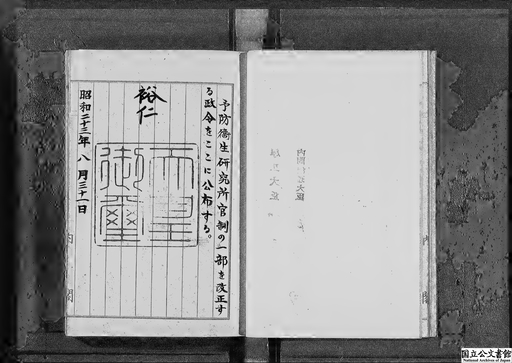 予防衛生研究所官制の一部を改正す
る政令をここに公布する。
裕仁
天皇
御璽
昭和二十三年八月三十一日
内閣
国立公文書館
National Archives of Japan